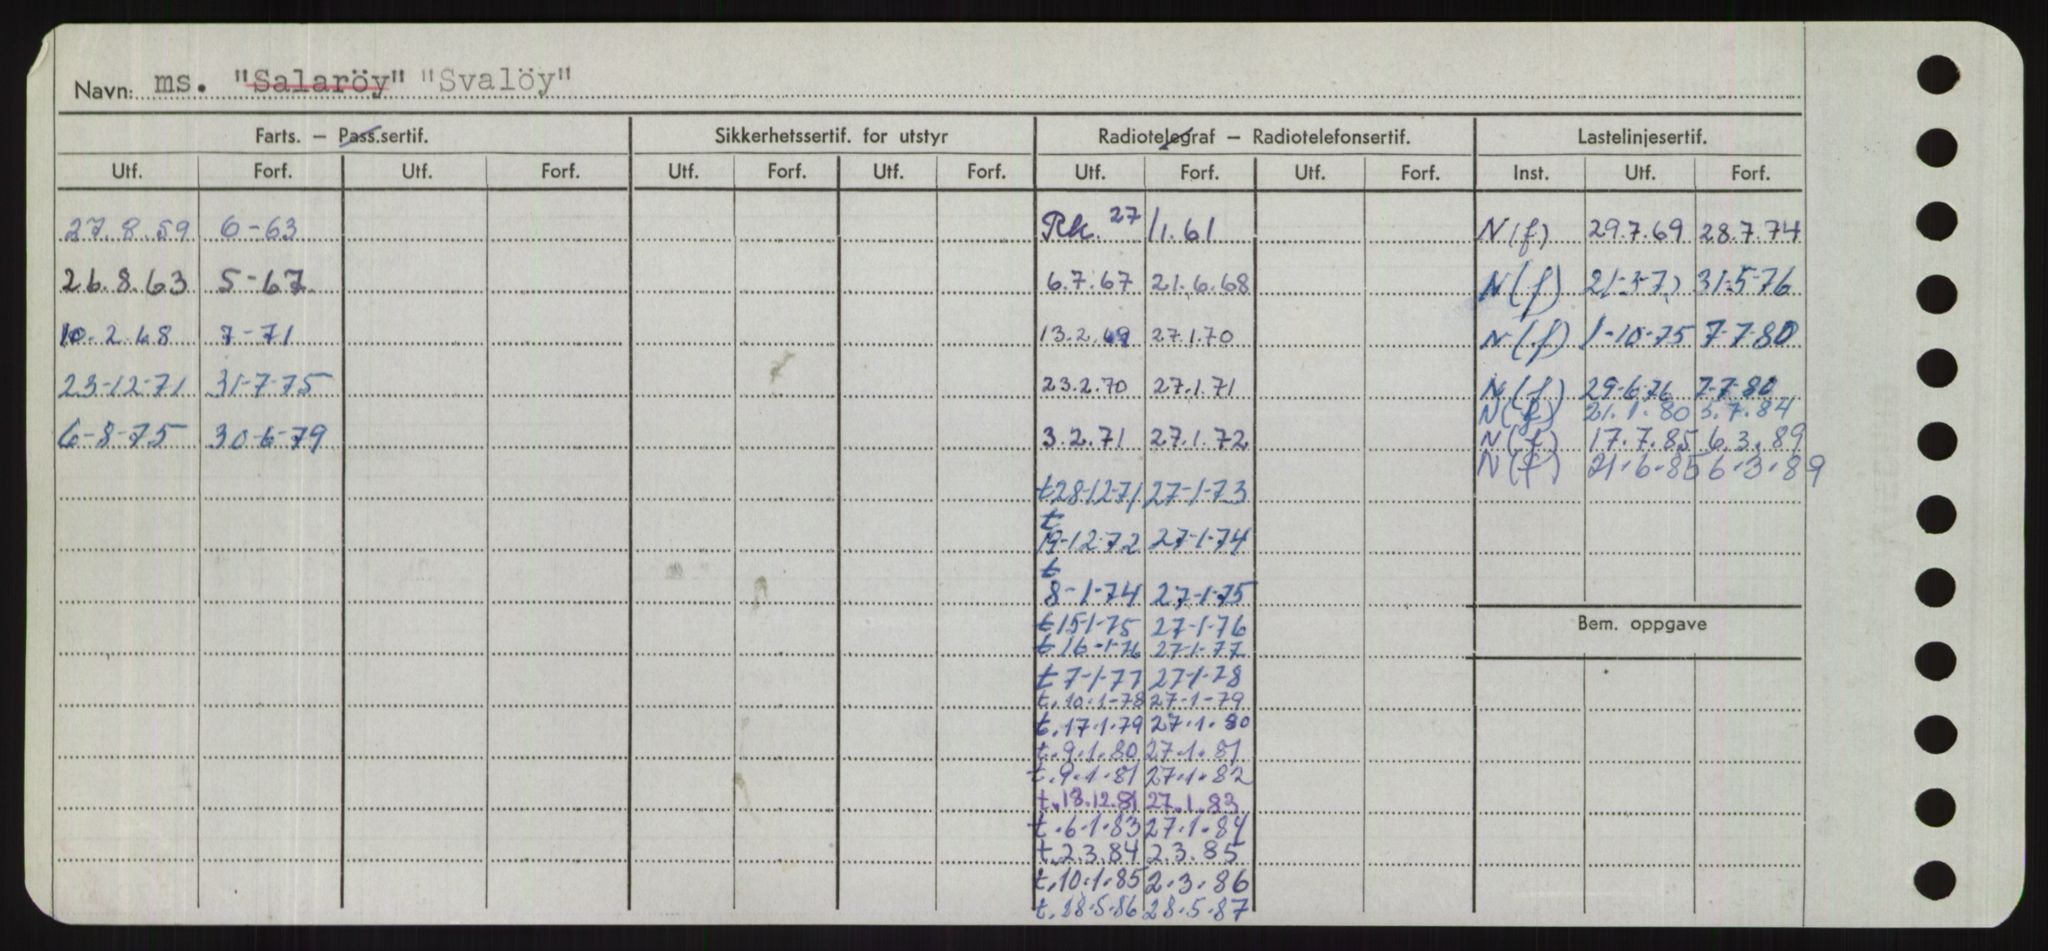 Navn: ms. "Salaröy" "Svalöy"
Farts. – Pass.sertif. Sikkerhetssertif. for utstyr Radiotelegraf – Radiotelefonsertif. Lastelinjesertif.
Utf. Forf. Utf. Forf. Utf. Forf. Utf. Forf. Utf. Forf. Utf. Forf. Inst. Utf. Forf.
27.8.59 6-63 Rk. 27/1.61 N(f) 29.7.69 28.7.74
26.8.63 5-67 6.7.67 21.6.68 N(f) 31-5-76
10.2.68 7-71 13.2.69 27.1.70 N(f) 1-10-75 7-7-80
23-12-71 31-7-75 23.2.70 27.1.71 N(f) 29-6-76 7-7-80
N(f) 21.1.80 3.7.84
6-8-75 30-6-79 3.2.71 27.1.72 N(f) 17.7.85 6.3.89
N(f) 21.6.85 6.3.89
t 28-12-71 27-1-73
t
19-12-72 27-1-74
t
8-1-74 27-1-75
t 15-1-75 27-1-76
t 16-1-76 27-1-77
t 7-1-77 27-1-78
t. 10.1-78 27-1-79
t. 17.1.79 27.1.80
t. 9.1.80 27.1.81
t. 9.1.81 27.1.82
t. 18.12.81 27.1.83
t. 6.1.83 27.1.84
t. 2.3.84 2.3.85
t. 10.1.85 2.3.86
t. 28.5.86 28.5.87
Bem. oppgave